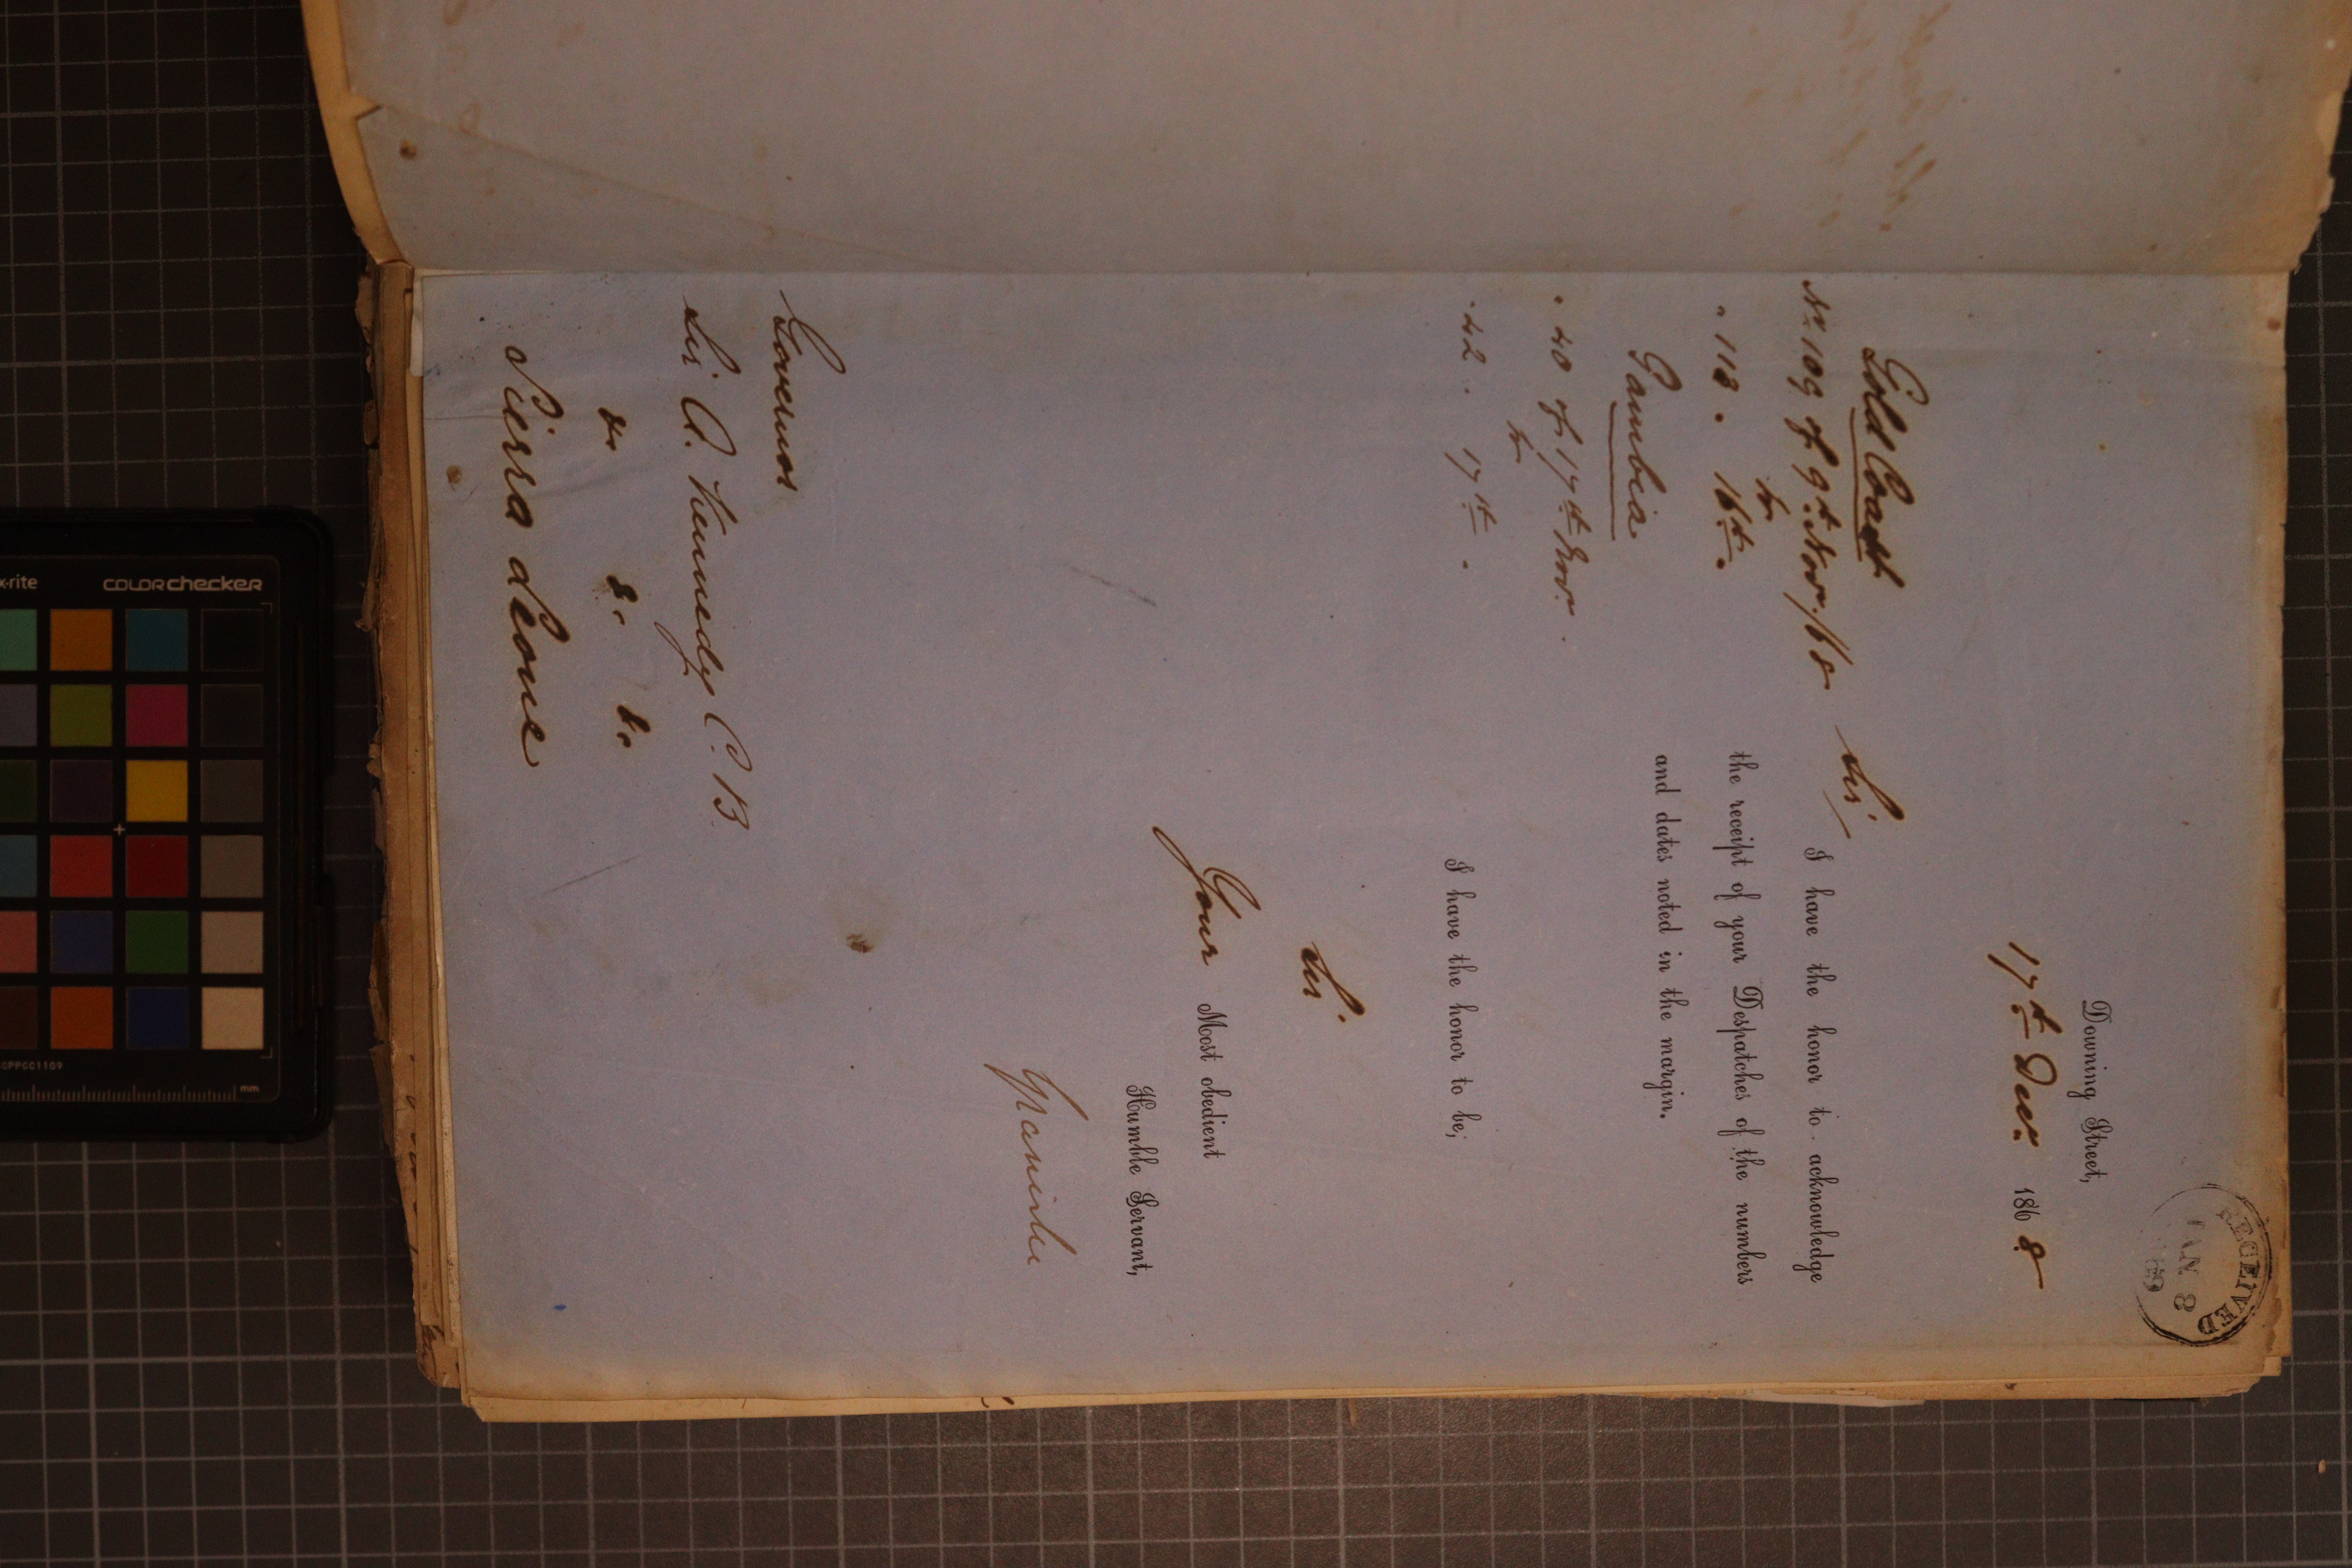 RECEIVED
JAN 8
69
Downing Street,
17th Decr. 1868
Gold Coast
No. 109 of 9th Novr./68
to
" 118 . 16th .
Gambia
" 40 of 17th Novr.
to
" 42 . 17th .
Sir/
I have the honor to acknowledge
the receipt of your Despatches of the numbers
and dates noted in the margin.
I have the honor to be;
Sir.
Your Most obedient
Humble Servant,
Governor
Sir A. Kennedy C.B.
&c &c &c
Sierra Leone
x-rite
colorchecker
mm